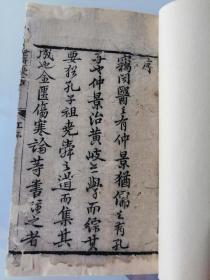 序
竊聞醫之有仲景猶儒之有孔
子也仲景治黃岐之學而綜其
要猶孔子祖堯舜之道而集其
成也金匱傷寒論等書語之者